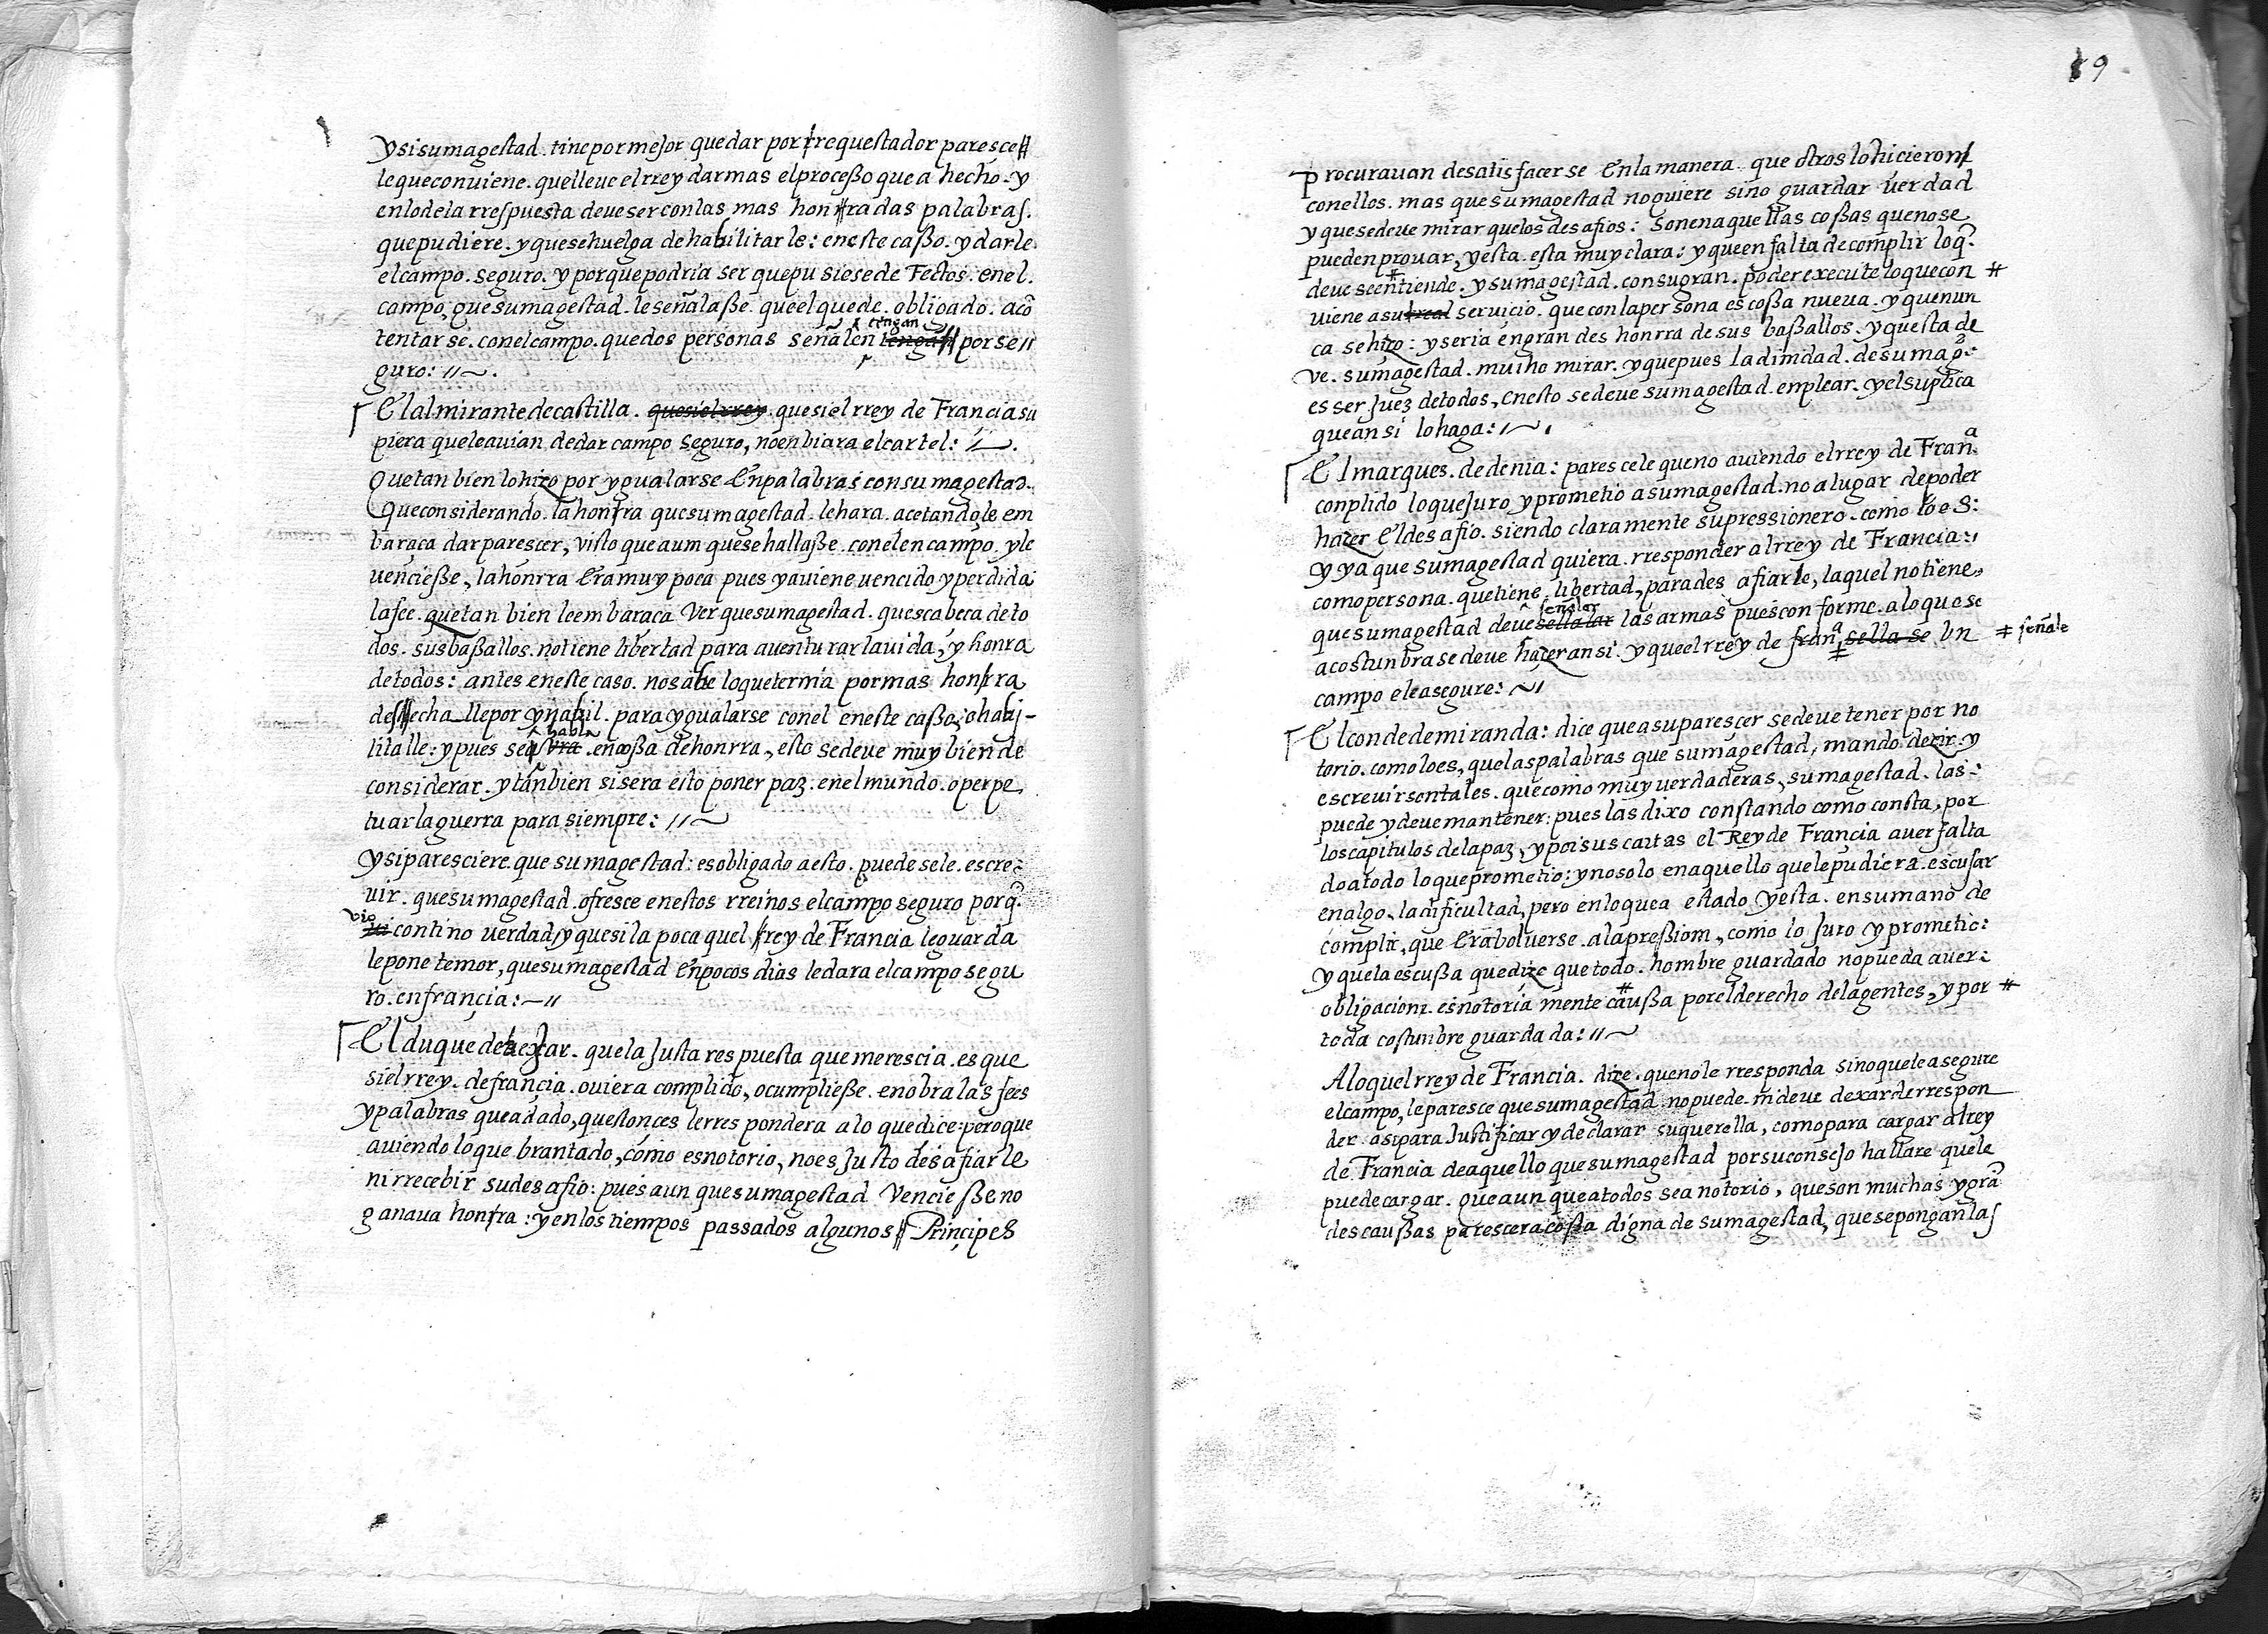 y si su magestad . tine por mejor quedar por rrequestador paresce
le que conuiene . quelleue el rrey darmas el proceßo que a hecho . y
en lo de la rrespuesta deue ser con las mas honradas palabras .
que pudiere . y que se huelga de habilitarle : en este caßo . y darle
el campo . seguro . y porque podria ser que pusiese defectos . en el .
campo , que su magestad . le señalaße . que el quede . obligado . a cõ
tentarse . con el campo . que dos personas señalen tengan por se
guro : //~ .
El almirante de castilla . que si el rrey . que si el rrey de Francia su
piera que le auian de dar campo seguro , no enbiara el cartel :
Que tan bien lo hizo por ygualarse En palabras con su magestad .
Que considerando . la honrra que su magestad . le hara . acetandole em
baraça dar parescer , visto que aum que se hallaße . con el en campo . y le
uencieße , la honrra Era muy poca pues ya uiene uencido y perdida
la fee . que tan bien le embaraça Ver que su magestad . ques cabeça de to
dos . sus baßallos . no tiene libertad para auenturar la uida , y honra
de todos : antes en este caso . no sabe lo que ternia por mas honrra
desecha lle por ynabil . para ygualarse con el en este caßo , o habi-
litalle : y pues se habla . en coßa de honrra , esto se deue muy bien de
considerar . y tanbien si sera esto poner paz . en el mundo . o perpe
tuar la guerra para siempre : //~
y si paresciere . que su magestad : es obligado a esto . puedesele . escre
uir . que su magestad . ofresce en estos rreinos el campo seguro porq̃
vio contino uerdad , y que si la poca quel rrey de Francia le guarda
le pone temor , que su magestad En pocos dias le dara el campo segu
ro . en françia : ~//
El duque de bexar . que la justa respuesta que merescia . es que
si el rrey . de françia . ouiera complido , o cumpließe . en obra las fees
y palabras que a dado , questonçes le rrespondera a lo que dice : pero que
auiendo lo quebrantado , como es notorio , no es justo desafiarle
ni rrecebir su desafio : pues aun que su magestad Vencieße no
ganaua honrra : y en los tiempos passados algunos Principes
19
Procurauan de satisfacerse En la manera . que otros lo hicieron
con ellos . mas que su magestad no quiere sino guardar verdad
y que se deue mirar que los desafios : son en aquellas coßas que no se
pueden prouar , y esta . esta muy clara : y que en falta de complir lo q̃
deue se entiende . y su magestad . con su gran . poder execute lo que con #
uiene a su real seruicio . que con la persona es coßa nueua . y que nun
ca se hizo : y seria en grandes honrra de sus baßallos . y questa de
ve . su magestad . mucho mirar . y que pues la dinidad . de su mag.
es ser juez de todos , en esto se deue su magestad . enplear . y el suplica
que ansi lo haga : //~
El marques . de denia : parescele que no auiendo el rrey de Fran.ª
conplido lo que juro y prometio a su magestad . no a lugar de poder
hazer El desafio . siendo claramente su pressionero . como lo es :
y ya que su magestad quiera . rresponder al rrey de Francia :
como persona . que tiene . libertad , para desafiarle , la quel no tiene
que su magestad deue sellalar señalar las armas pues conforme . a lo que se
acostunbra se deue haçer ansi . y que el rrey de fran.ª sella se vn # señale
campo e le asegure : ~/
El conde de miranda : dice que a su parescer se deue tener por no
torio . como lo es , que las palabras que su magestad , mando dezir . y
escreuir son tales . que como muy verdaderas , su magestad . las
puede y deue mantener : pues las dixo constando como consta , por
los capitulos de la paz , y por sus cartas el Rey de Francia auer falta
do a todo lo que prometio : y no solo en aquello que le pudiera escusar
en algo , la dificultad , pero en lo que a estado y esta . en su mano de
complir , que Era boluerse . a la preßiom , como lo juro y prometio :
y que la escußa que dize que todo . hombre guardado no pueda auer
obligacion . es notoria mente caußa por el derecho de la gentes , y por #
toda costunbre guardada : //~
A lo quel rrey de Francia . dize . que no le rresponda sino que le asegure
el campo , le paresce que su magestad . no puede . ni deue dexar de rrespon
der . asi para justificar y declarar su querella , como para cargar al rey
de Francia de aquello que su magestad por su consejo hallare que le
puede cargar . que aun que a todos sea notorio , que son muchas y grã
des caußas parescera cosa digna de su magestad , que se pongan las